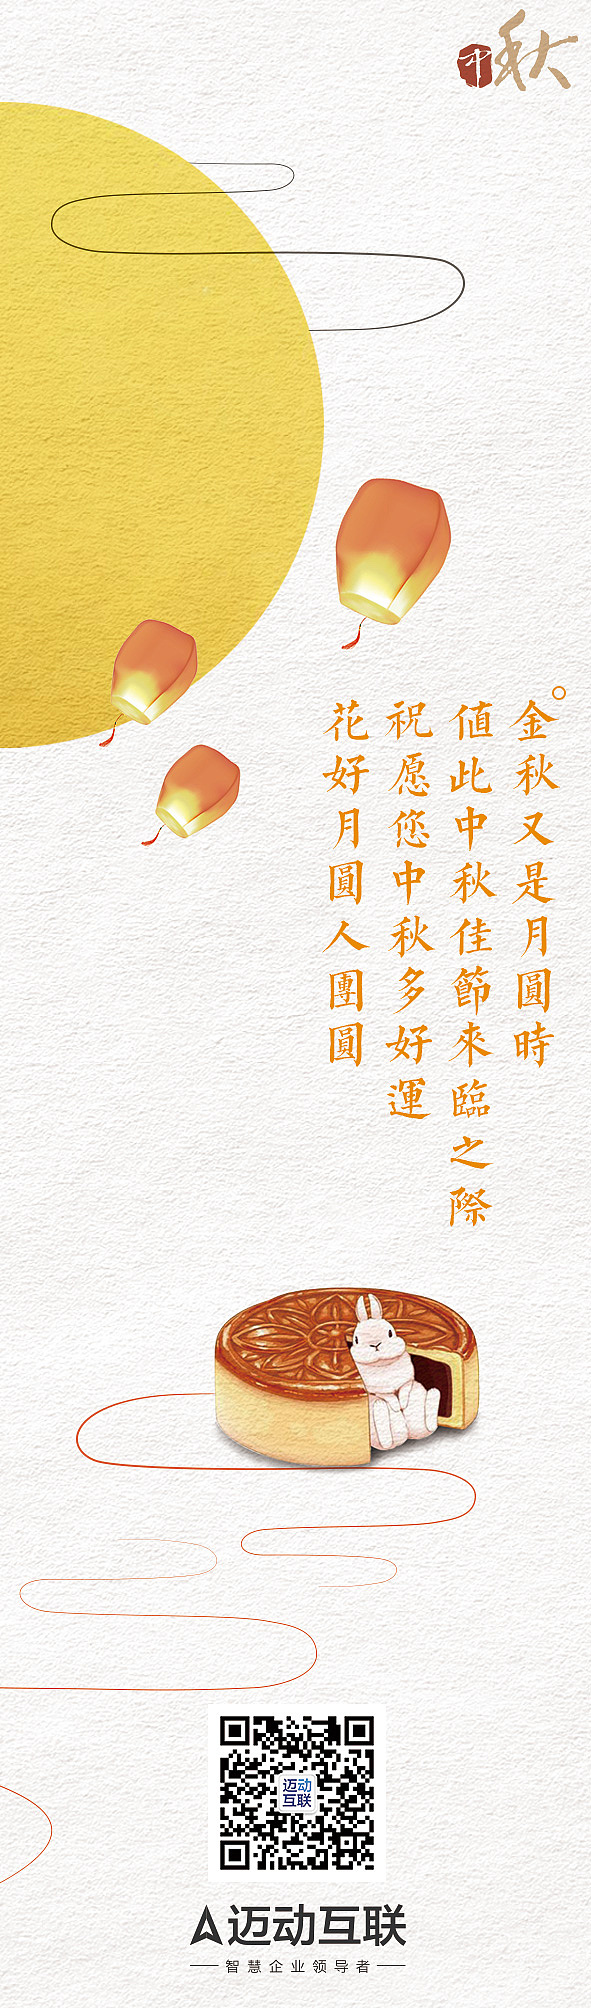 中秋
金秋又是月圓時
值此中秋佳節來臨之際
祝愿您中秋多好運
花好月圓人團圓
迈动
互联
迈动互联
智慧企业领导者